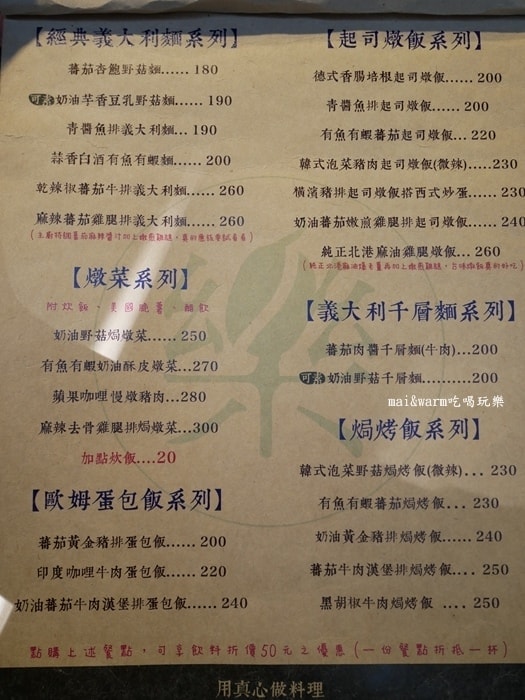 【經典義大利麵系列】
蕃茄杏鮑野菇麵...... 180
可素 奶油芋香豆乳野菇麵...... 190
青醬魚排義大利麵... 190
蒜香白酒有魚有蝦麵...... 200
乾辣椒蕃茄牛排義大利麵...... 260
麻辣蕃茄雞腿排義大利麵...... 260
【燉菜系列】
附炊飯、美國脆薯、甜飲
奶油野菇焗燉菜...... 250
有魚有蝦奶油酥皮燉菜...270
蘋果咖哩慢燉豬肉...280
麻辣去骨雞腿排焗燉菜...300
加點炊飯....20
【歐姆蛋包飯系列】
蕃茄黃金豬排蛋包飯...... 200
印度咖哩牛肉蛋包飯...... 220
奶油蕃茄牛肉漢堡排蛋包飯...... 240
【起司燉飯系列】
德式香腸培根起司燉飯...... 200
青醬魚排起司燉飯...... 200
有魚有蝦蕃茄起司燉飯... 220
韓式泡菜豬肉起司燉飯(微辣).....230
橫濱豬排起司燉飯搭西式炒蛋......230
奶油蕃茄嫩煎雞腿排起司燉飯......240
純正北港麻油雞腿燉飯... 260
【義大利千層麵系列】
蕃茄肉醬千層麵(牛肉)...200
可素 奶油野菇千層麵..........200
mai&warm吃喝玩樂
【焗烤飯系列】
韓式泡菜野菇焗烤飯(微辣)... 230
有魚有蝦蕃茄焗烤飯... 230
奶油黃金豬排焗烤飯.... 240
蕃茄牛肉漢堡排焗烤飯.... 250
黑胡椒牛肉焗烤飯 .... 250
點購上述餐點，可享飲料折價50元之優惠(一份餐點折抵一杯)
用真心做料理